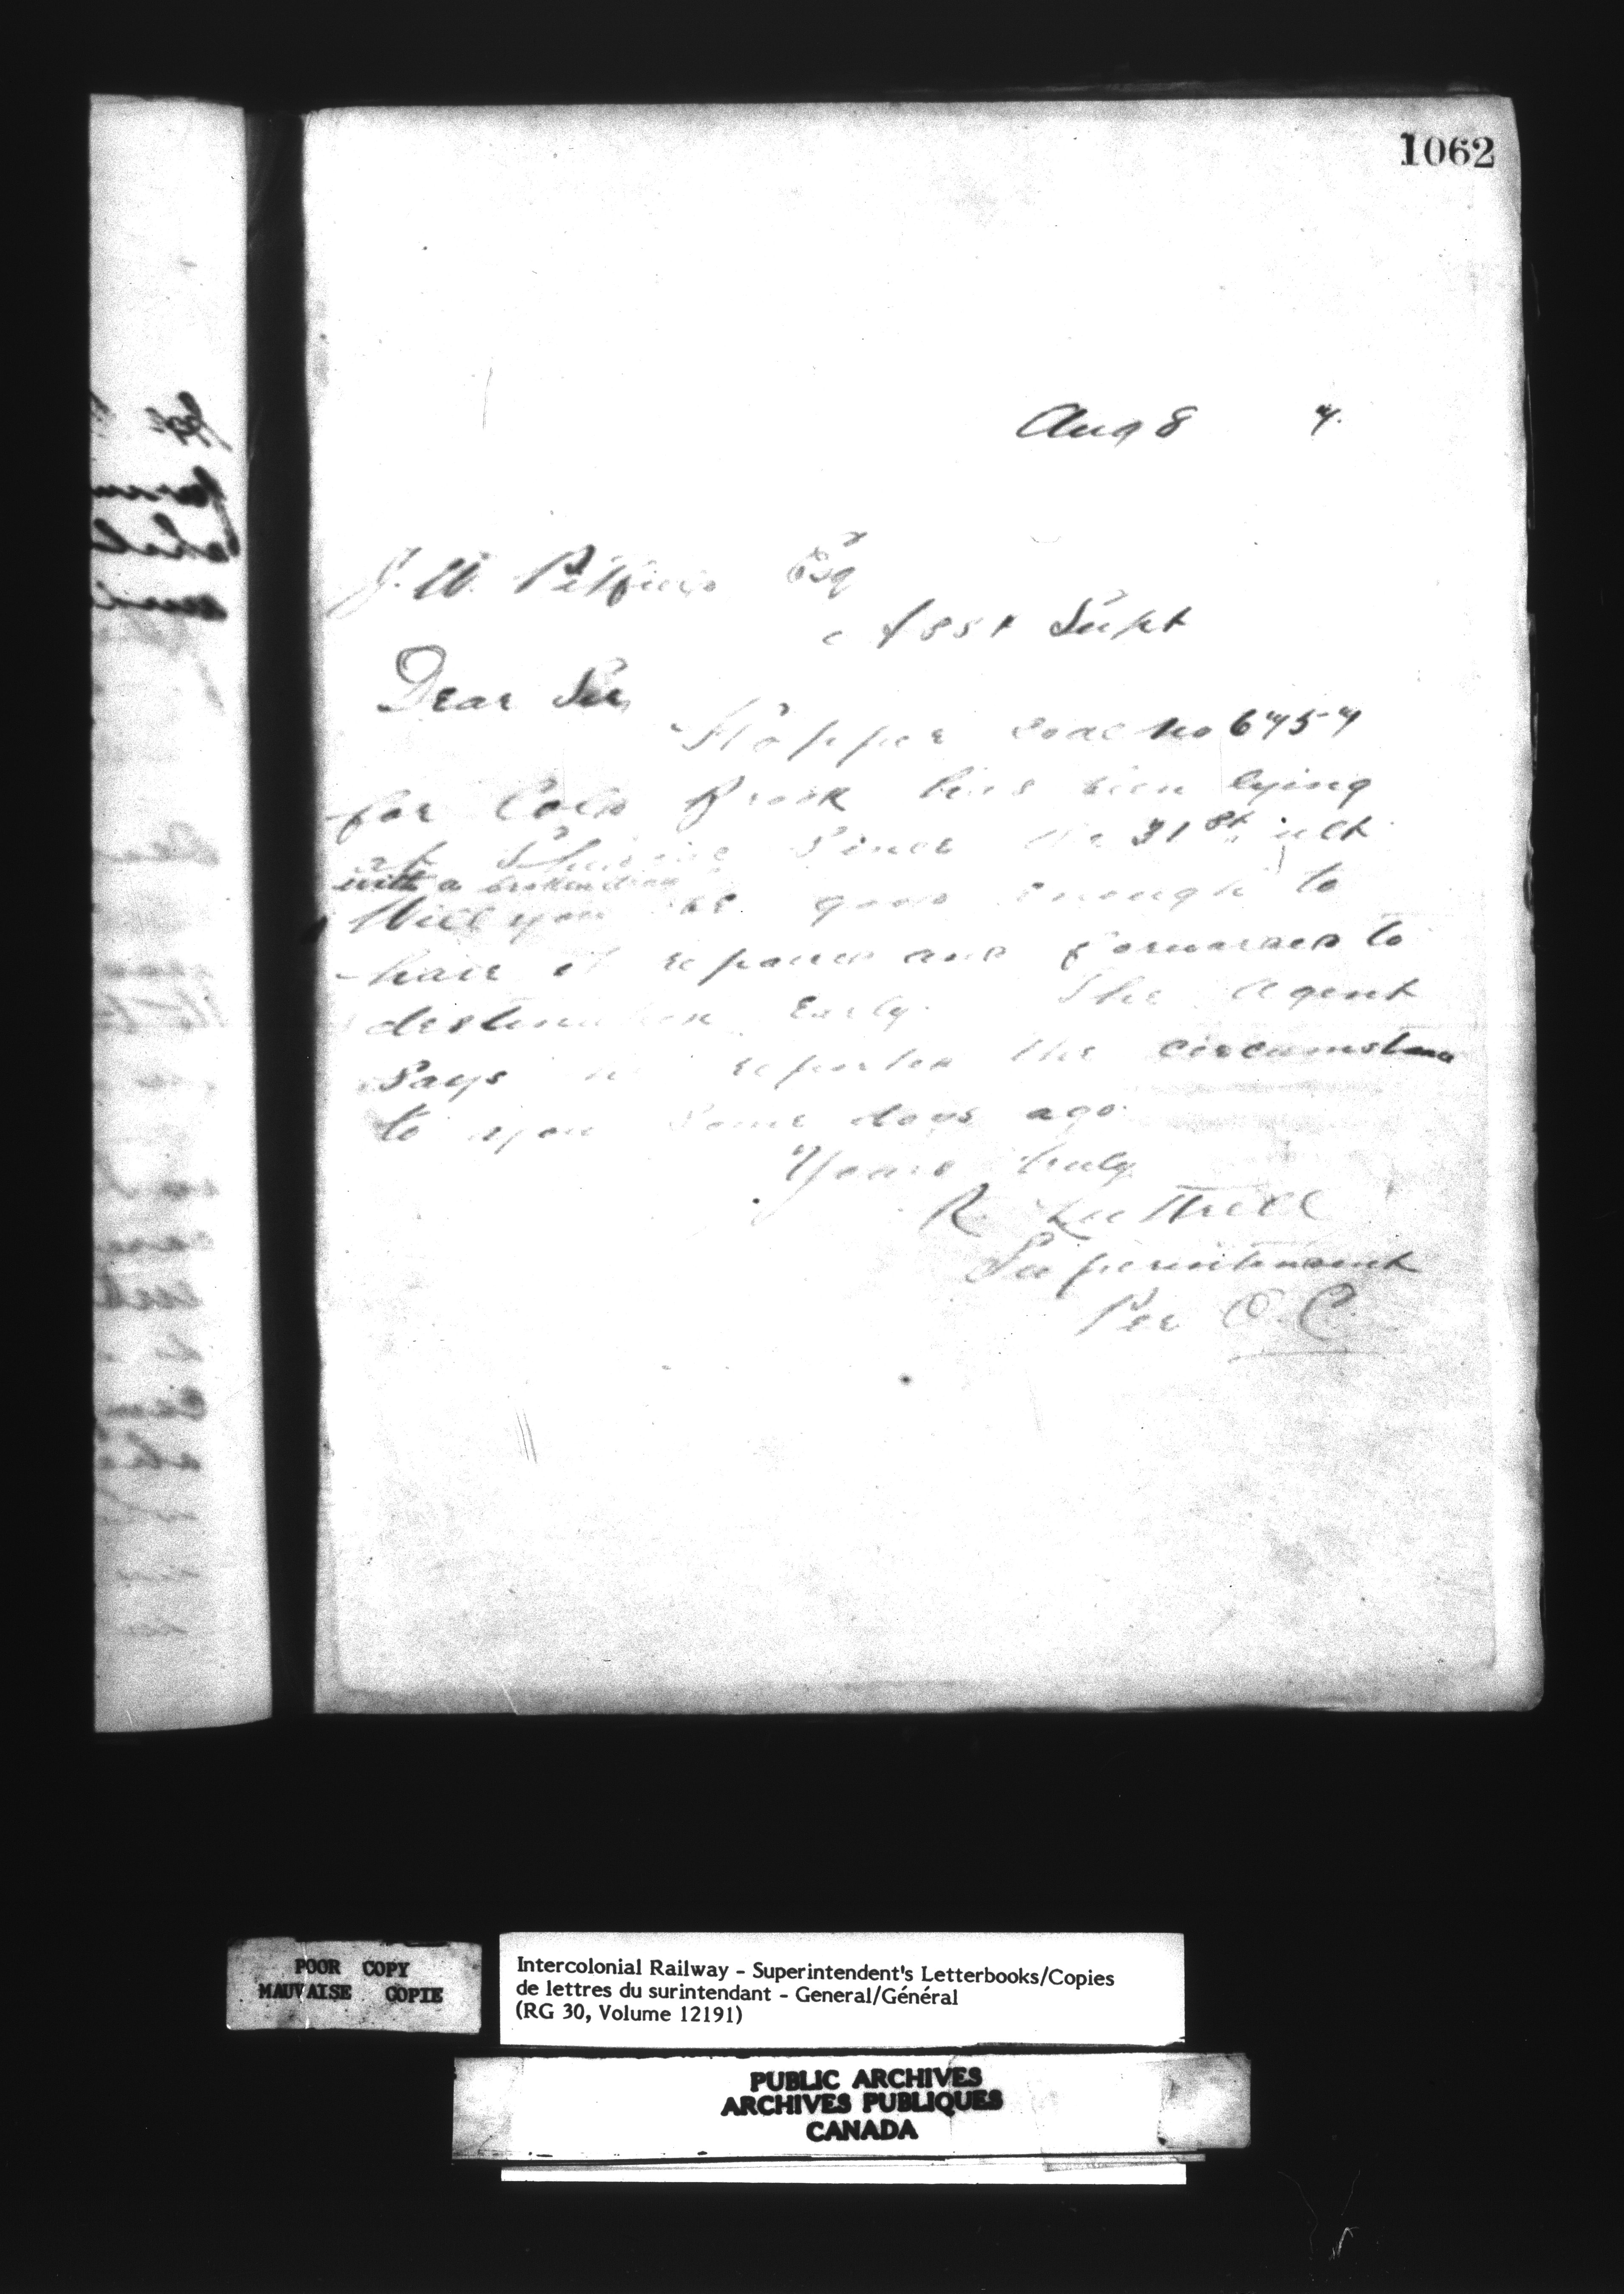 1062
Aug 8 7.
J. W. Esqr
Asst Supt
Dear Sir
Hopper coal no 6757
for Cold Brook has been lying
at since the 31st ult
with a broken
Will you be good enough to
have it repaired and forwarded to
destination early. The Agent
says he reported the circumstance
to you some days ago.
Yours truly
R. Luttrell
Superintendent
Per O. C.
POOR COPY
MAUVAISE COPIE
Intercolonial Railway - Superintendent's Letterbooks/Copies
de lettres du surintendant - General/Général
(RG 30, Volume 12191)
PUBLIC ARCHIVES
ARCHIVES PUBLIQUES
CANADA